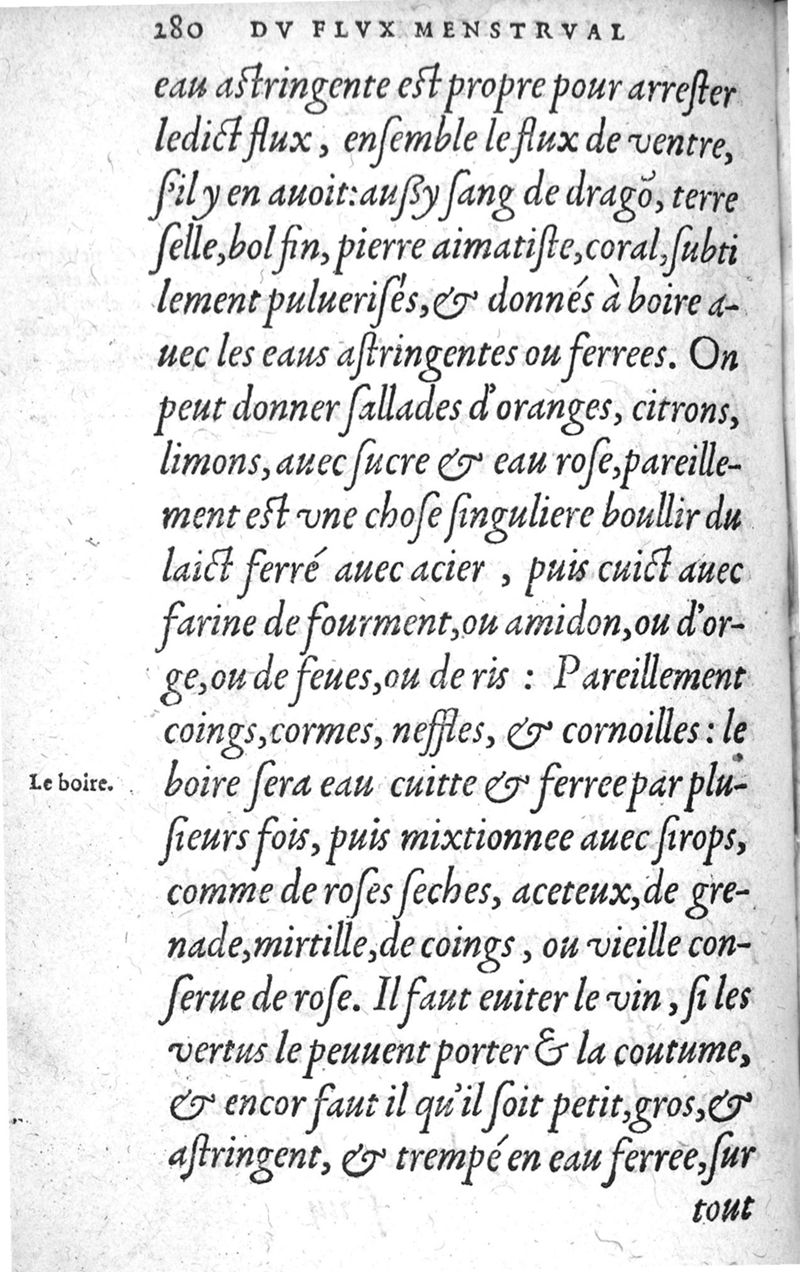 280 DV FLVX MENSTRVAL
eau astringente est propre pour arreſter
ledict flux, enſemble le flux de ventre,
ſ'il y en auoit: auſſy ſang de dragõ, terre
ſelle, bol fin, pierre aimatiſte, coral, ſubti
lement pulueriſés, & donnés à boire a-
uec les eaus aſtringentes ou ferrees. On
peut donner ſallades d'oranges, citrons,
limons, auec ſucre & eau roſe, pareille-
ment est vne choſe ſinguliere boullir du
laict ferré auec acier, puis cuict auec
farine de fourment, ou amidon, ou d'or-
ge, ou de feues, ou de ris : Pareillement
coings, cormes, neffles, & cornoilles : le
Le boire. boire ſera eau cuitte & ferree par plu-
ſieurs fois, puis mixtionnee auec ſirops,
comme de roſes ſeches, aceteux, de gre-
nade, mirtille, de coings, ou vieille con-
ſerue de roſe. Il faut euiter le vin, ſi les
vertus le peuuent porter & la coutume,
& encor faut il qu'il ſoit petit, gros, &
aſtringent, & trempé en eau ferree, ſur
tout